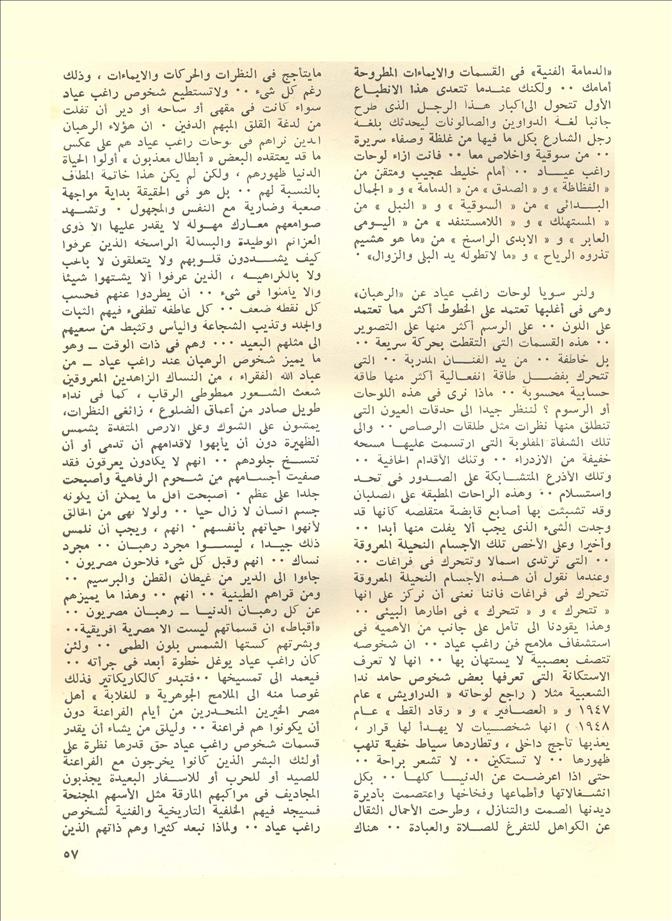 «الدمامة الفنية» فى القسمات والايماءات المطروحة
أمامك ٠٠ ولكنك عندما تتعدى هذا الانطباع
الأول تتحول الى اكبار هذا الرجل الذى طرح
جانبا لغة الدواوين والصالونات ليحدثك بلغة
رجل الشارع بكل ما فيها من غلظة وصفاء سريرة
٠٠ من سوقية واخلاص معا ٠٠ فأنت ازاء لوحات
راغب عياد ٠٠ أمام خليط عجيب ومتقن من
« الفظاظة » و « الصدق » من « الدمامة » و « الجمال
البدائى » من « السوقية » و « النبل » من
« المستهلك » و « اللامستنفد » من « اليومى
العابر » و « الابدى الراسخ » من «ما هو هشيم
تذروه الرياح » و «ما لاتطوله يد البلى والزوال» ٠
ولنر سويا لوحات راغب عياد عن «الرهبان»
وهى فى أغلبها تعتمد على الخطوط أكثر مما تعتمد
على اللون ٠٠ على الرسم أكثر منها على التصوير
٠٠ هذه القسمات التى التقطت بحركة سريعة ٠٠
بل خاطفة ٠٠ من يد الفنان المدربة ٠٠ التى
تتحرك بفضل طاقة انفعالية أكثر منها طاقة
حسابية محسوبة ٠٠ ماذا نرى فى هذه اللوحات
أو الرسوم ؟ لننظر جيدا الى حدقات العيون التى
تنطلق منها نظرات مثل طلقات الرصاص ٠٠ والى
تلك الشفاة المقلوبة التى ارتسمت عليها مسحه
خفيفة من الازدراء ٠٠ وتلك الأقدام الحافية ٠٠
وتلك الأذرع المتشابكة على الصدور فى تحد
واستسلام ٠٠ وهذه الراحات المطبقه على الصلبان
وقد تشبثت بها أصابع قابضة متقلصه كأنها قد
وجدت الشىء الذى يجب ألا يفلت منها أبدا ٠٠
وأخيرا وعلى الأخص تلك الأجسام النحيلة المعروقة
٠٠ التى ترتدى اسمالا وتتحرك فى فراغات ٠٠
وعندما نقول أن هذه الأجسام النحيلة المعروقة
تتحرك فى فراغات فاننا نعنى أن نركز على انها
« تتحرك » و « تتحرك » فى اطارها البيئى ٠٠
وهذا يقودنا الى تأمل على جانب من الأهمية فى
استشفاف ملامح فن راغب عياد ٠٠ ان شخوصه
تتصف بعصبية لا يستهان بها ٠٠ انها لا تعرف
الاستكانة التى تعرفها بعض شخوص حامد ندا
الشعبية مثلا ( راجع لوحاته « الدراويش » عام
١٩٤٧ و « العصافير » و « رقاد القط » عام
١٩٤٨ ) انها شخصيات لا يهدأ لها قرار ،
يعذبها تأجج داخلى ، وتطاردها سياط خفية تلهب
ظهورها ٠٠ لا تستكين ٠٠ لا تشعر براحة ٠٠
حتى اذا اعرضت عن الدنيا كلها ٠٠ بكل
انشغالاتها وأطماعها وفخاخها واعتصمت بأديرة
ديدنها الصمت والتنازل ، وطرحت الأحمال الثقال
عن الكواهل للتفرغ للصلاة والعبادة ٠٠ هناك
مايتأجج فى النظرات والحركات والايماءات ، وذلك
رغم كل شىء ٠٠ ولاتستطيع شخوص راغب عياد
سواء كانت فى مقهى أو ساحه أو دير أن تفلت
من لدغة القلق المبهم الدفين ٠ ان هؤلاء الرهبان
الذين نراهم فى لوحات راغب عياد هم على عكس
ما قد يعتقده البعض « أبطال معذبون » أولوا الحياة
الدنيا ظهورهم ، ولكن لم يكن هذا خاتمة المطاف
بالنسبة لهم ٠٠ بل هو فى الحقيقة بداية مواجهة
صعبة وضارية مع النفس والمجهول ٠ وتشهد
صوامعهم معارك مهوله لا يقدر عليها الا ذوى
العزائم الوطيدة والبسالة الراسخه الذين عرفوا
كيف يشددون قلوبهم ولا يتعلقون لا بالحب
ولا بالكراهيه ، الذين عرفوا ألا يشتهوا شيئا
والا يأمنوا فى شىء ٠٠ أن يطردوا عنهم فحسب
كل نقطه ضعف ٠٠ كل عاطفه تطفىء فيهم الثبات
والجلد وتذيب الشجاعة والياس وتثبط من سعيهم
الى مثلهم البعيد ٠٠٠ وهم فى ذات الوقت ــ وهو
ما يميز شخوص الرهبان عند راغب عياد ــ من
عباد الله الفقراء ، من النساك الزاهدين المعروقين
شعث الشعور ممطوطى الرقاب ، كما فى نداء
طويل صادر من أعماق الضلوع ، زائغى النظرات،
يمشون على الشوك وعلى الارض المتقدة بشمس
الظهيرة دون أن يأبهوا لاقدامهم أن تدمى أو أن
تتسخ جلودهم ٠٠ انهم لا يكادون يعرفون فقد
صفيت أجسامهم من شحوم الرفاهية وأصبحت
جلدا على عظم ٠ أصبحت أقل ما يمكن أن يكونه
جسم انسان لا زال حيا ٠٠ ولولا نهى من الخالق
لأنهوا حياتهم بأنفسهم ٠ انهم ، ويجب أن نلمس
ذلك جيدا ، ليسوا مجرد رهبان ٠٠ مجرد
نساك ٠٠ انهم وقبل كل شىء فلاحون مصريون ٠
جاءوا الى الدير من غيطان القطن والبرسيم ٠٠
ومن قراهم الطينية ٠٠ انهم ٠٠ وهذا ما يميزهم
عن كل رهبان الدنيا ــ رهبان مصريون ٠٠
«أقباط» ان قسماتهم ليست الا مصرية افريقية٠٠
وبشرتهم كستها الشمس بلون الطمى ٠٠ ولئن
كان راغب عياد يوغل خطوة أبعد فى جرأته ٠٠
فيعمد الى تمسيخها ٠٠فتبدو كالكاريكاتير فذلك
غوصا منه الى الملامح الجوهرية « للغلابة » أهل
مصر الخيرين المنحدرين من أيام الفراعنة دون
أن يكونوا هم فراعنة ٠٠ وليلق من يشاء أن يقدر
قسمات شخوص راغب عياد حق قدرها نظرة على
أولئك البشر الذين كانوا يخرجون مع الفراعنة
للصيد أو للحرب أو للاسفار البعيدة يجذبون
المجاديف فى مراكبهم المارقة مثل الأسهم المجنحة
فسيجد فيهم الخلفية التاريخية والفنية لشخوص
راغب عياد ٠٠ ولماذا نبعد كثيرا وهم ذاتهم الذين
٥٧